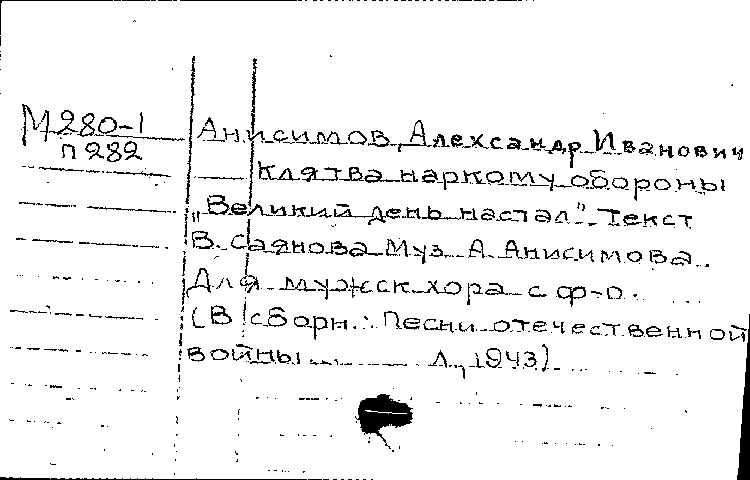 М280-1
п282
Анисимов, Александр Иванович
Клятва наркому обороны
„Великий день настал". Текст
В. Саянова Муз. А. Анисимова.
Для мужск. хора с ф-п.
(В сборн.: Песни отечественной
войны... Л., 1943)